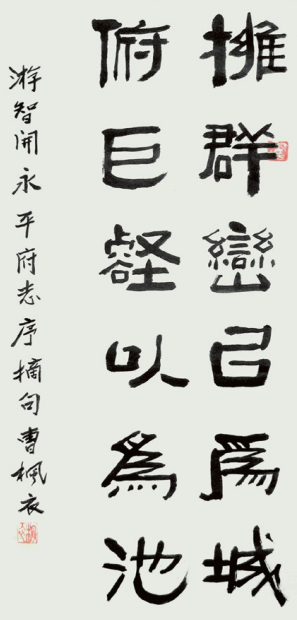 擁群巒㠯爲城
俯巨壑以爲池
游智開永平府志序摘句曹楓衣